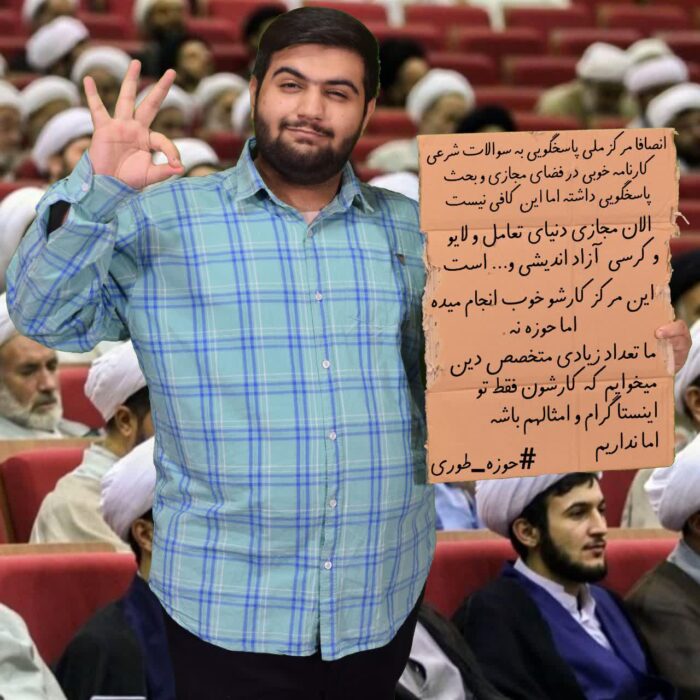 انصافا مرکز ملی پاسخگویی به سوالات شرعی
کارنامه خوبی در فضای مجازی و بحث
پاسخگویی داشته اما این کافی نیست
الان مجازی دنیای تعامل و لایو
و کرسی آزاد اندیشی و... است
این مرکز کارشو خوب انجام میده
اما حوزه نه
ما تعداد زیادی متخصص دین
میخوایم که کارشون فقط تو
اینستاگرام و امثالهم باشه
اما نداریم
#حوزه_طوری